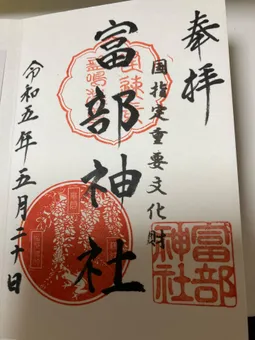 奉拝
国指定重要文化財
富部神社
令和五年五月二十日
富部
神社